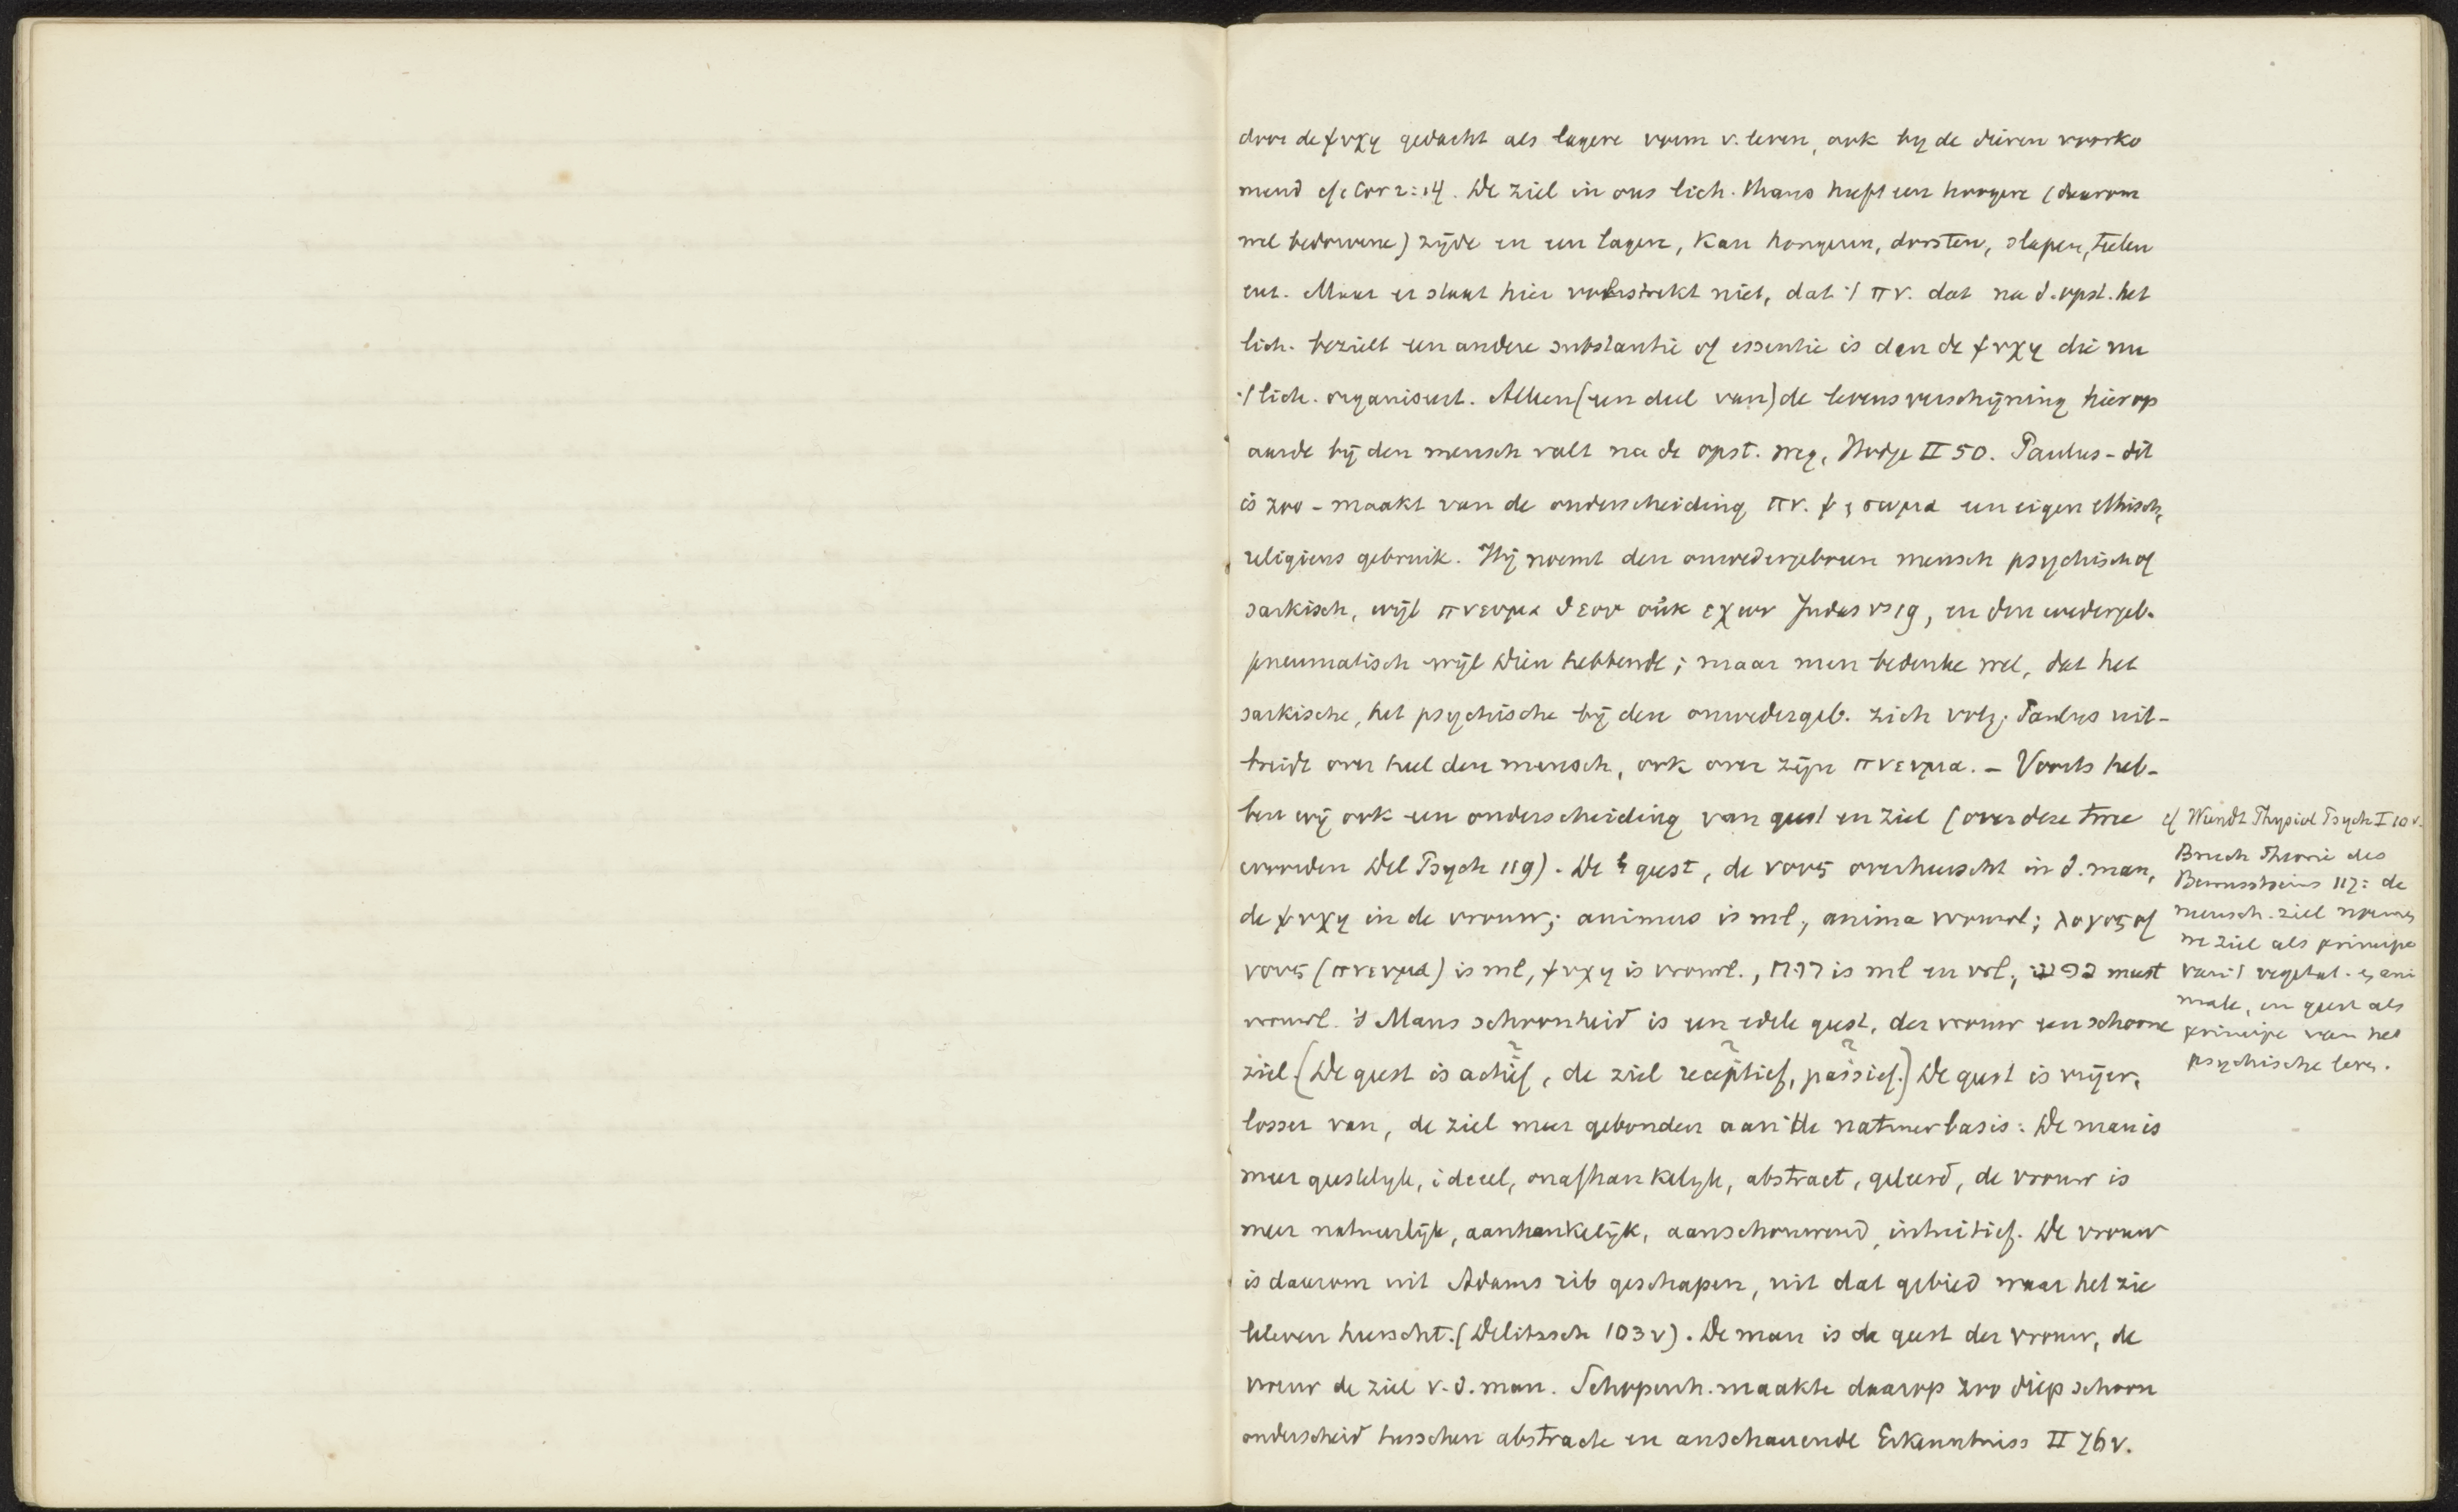 door de ψυχη gedacht als lagere vorm v. leven, ook by de dieren voorko
mend cf 1 Cor 2:14. De ziel in ons lich. thans heeft een hoogere (daarom
wel bedorvene) zijde en een lagere, kan hongeren, dorsten, slapen, telen
enz. Maar er staat hier volstrekt niet, dat 't πν. dat na d. opst. het
lich. bezielt een andere substantie of essentie is dan de ψυχη die nu
't lich. organiseert. Alleen (een deel van) de levensverschijning hier op
aarde bij den mensch valt na de opst. weg, Hodge II 50. Paulus - dit
is zoo - maakt van de onderscheiding πν. ψ & σωμα een eigen ethisch,
religieus gebruik. Hij noemt den onwedergeboren mensch psychisch of
sarkisch, wijl πνευμα θεου οὐκ εχων Judas vs 19, en den wedergeb.
pneumatisch wijl Dien hebbende; maar men bedenke wel, dat het
sarkische, het psychische bij den onwedergeb. zich volg. Paulus uit-
breidt over heel den mensch, ook over zijn πνευμα. - Voorts heb-
ben wij ook een onderscheiding van geest en ziel (over deze twee
woorden Del Psych 119). De geest, de νους overheerscht in d. man,
de ψυχη in de vrouw; animus is ml, anima vrouwl; λογος of
νους (πνευμα) is ml, ψυχη is vrouwl., רוח is ml en vrl, נפש meest
vrouwl. 's Mans schoonheid is een edele geest, der vrouw een schoone
ziel. (De geest is actief, de ziel receptief, passief.) De geest is vrijer,
losser van, de ziel meer gebonden aan de natuurbasis: De man is
meer geestelyk, ideeel, onafhankelyk, abstract, geleerd, de vrouw is
meer natuurlijk, aanhankelijk, aanschouwend, intuitief. De vrouw
is daarom uit Adams rib geschapen, uit dat gebied waar het zie
leleven heerscht. (Delitzsch 103 v). De man is de geest der vrouw, de
vrouw de ziel v. d. man. Schopenh. maakte daarop zoo diep schoon
onderscheid tusschen abstracte en anschauende Erkenntniss II 76 v.
cf Wundt Physiol Psych I 10 v.
Bruch Theorie des
Bewusstseins 117: de
mensch. ziel noemen
we ziel als principe
van 't vegetat. & ani
male, en geest als
principe van het
psychische leven.